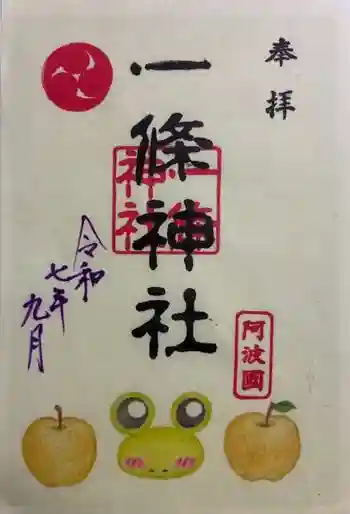 奉拝
一條神社
一條神社
令和
七年
九月
阿波國